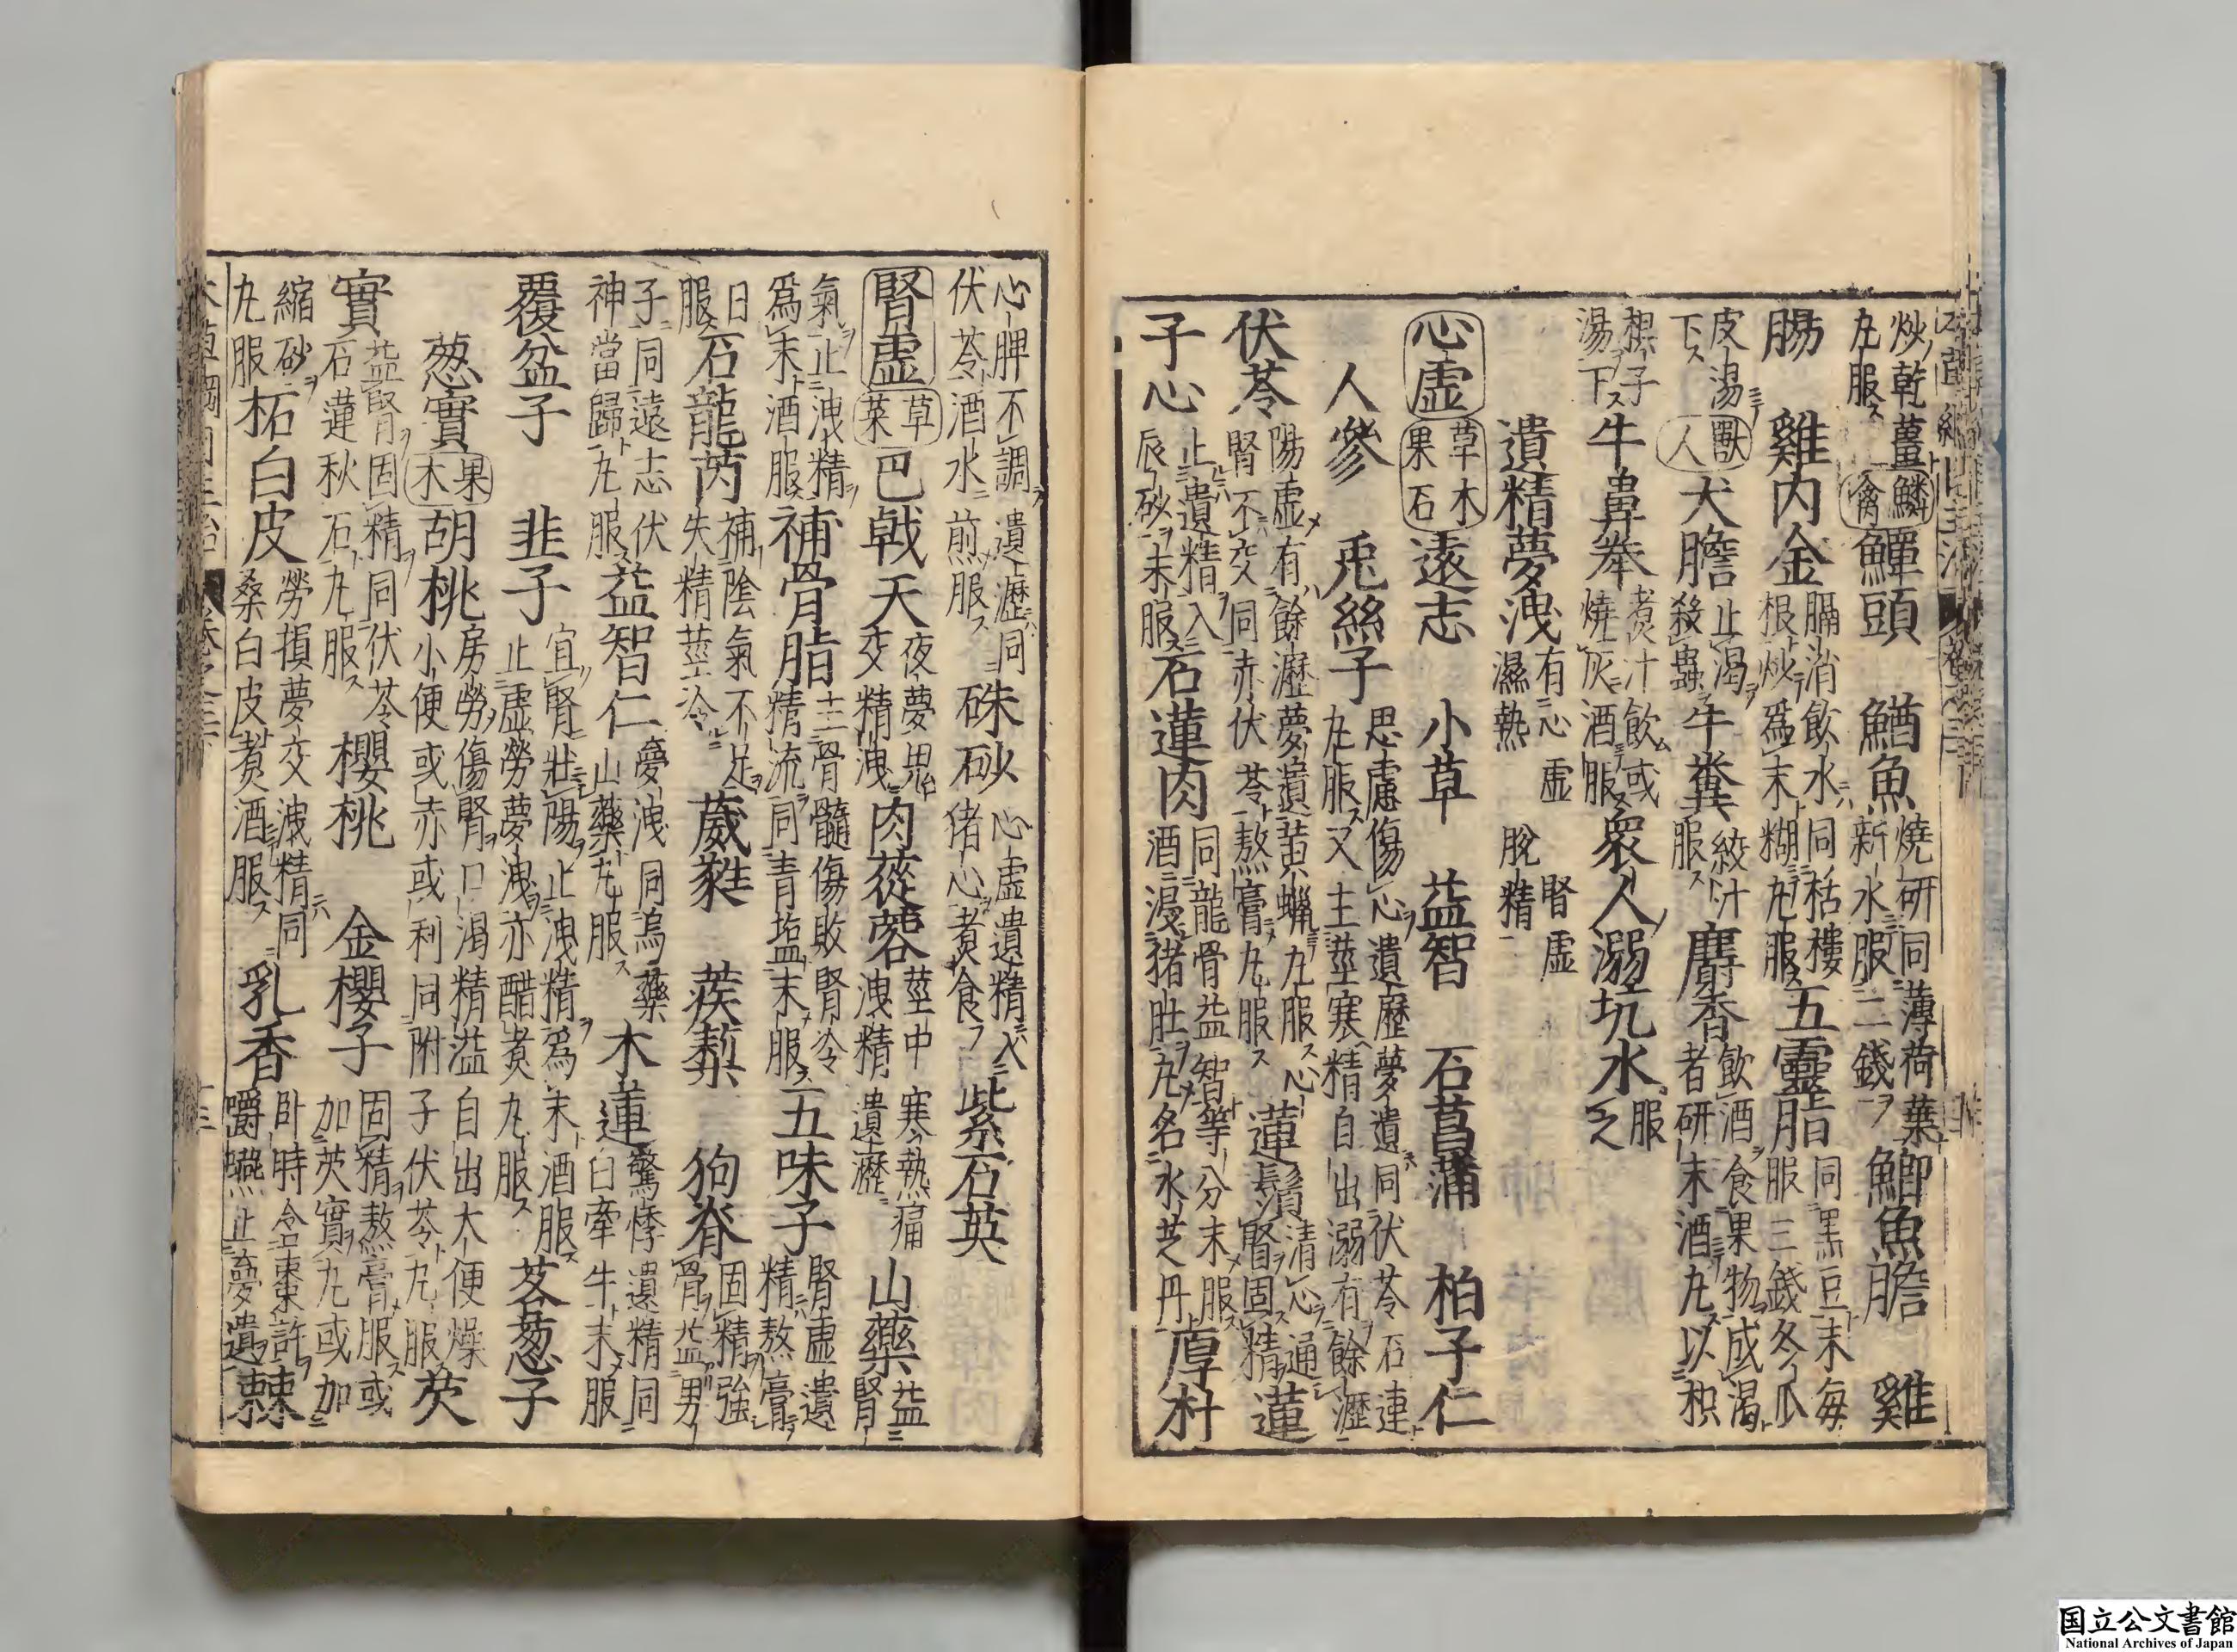 炒乾薑丸服 鱗禽 鱓頭 鰌魚 燒研同薄荷葉新水服二錢 鯽魚膽 雞
腸 雞內金 膈消飲水同栝樓根炒爲末糊丸服 五靈脂 同黑豆末每服三錢冬瓜
皮湯下 獸人 犬膽 止渴殺蟲 牛糞 絞汁服 麝香 飲酒食果物成渴者研末酒丸以枳
椇子湯下 牛鼻拳 煮汁飲或燒灰酒服 衆人溺坑水 服之
遺精夢洩 有心虛 腎虛 濕熱 脫精
心虛 草木果石 遠志 小草 益智 石菖蒲 柏子仁
人參 兎絲子 思慮傷心遺瀝夢遺同伏苓石連丸服又主莖寒精自出溺有餘瀝
伏苓 陽虛有餘瀝夢遺黃蠟丸服心腎不交同赤伏苓熬膏丸服 蓮鬚 清心通腎固精 蓮
子心 止遺精入辰砂末服 石蓮肉 同龍骨益智等分末服酒浸猪肚丸名水芝丹 厚朴
心脾不調遺瀝同伏苓酒水煎服 硃砂 心虛遺精入猪心煮食 紫石英
腎虛 草菜 巴戟天 夜夢鬼交精洩 肉蓯蓉 莖中寒熱痛洩精遺瀝 山藥 益腎
氣止洩精爲末酒服 補骨脂 主骨髓傷敗腎冷精流同青塩末服 五味子 腎虛遺精熬膏
日服 石龍芮 補陰氣不足失精莖冷 葳蕤 蒺藜 狗脊 固精強骨益男
子同遠志伏神當歸丸服 益智仁 夢洩同烏藥山藥丸服 木蓮 驚悸遺精同白牽牛末服
覆盆子 韭子 宜腎壯陽止洩精爲末酒服止虛勞夢洩亦醋煮丸服 茖葱子
葱實 果木 胡桃 房勞傷腎口渴精溢自出大便燥小便或赤或利同附子伏苓丸服 芡
實 益腎固精同伏苓石蓮秋石丸服 櫻桃 金櫻子 固精熬膏服或加芡實丸或加
縮砂丸服 柘白皮 勞損夢交洩精同桑白皮煮酒服 乳香 卧時含棗許嚼嚥止夢遺 棘
国立公文書館
National Archives of Japan